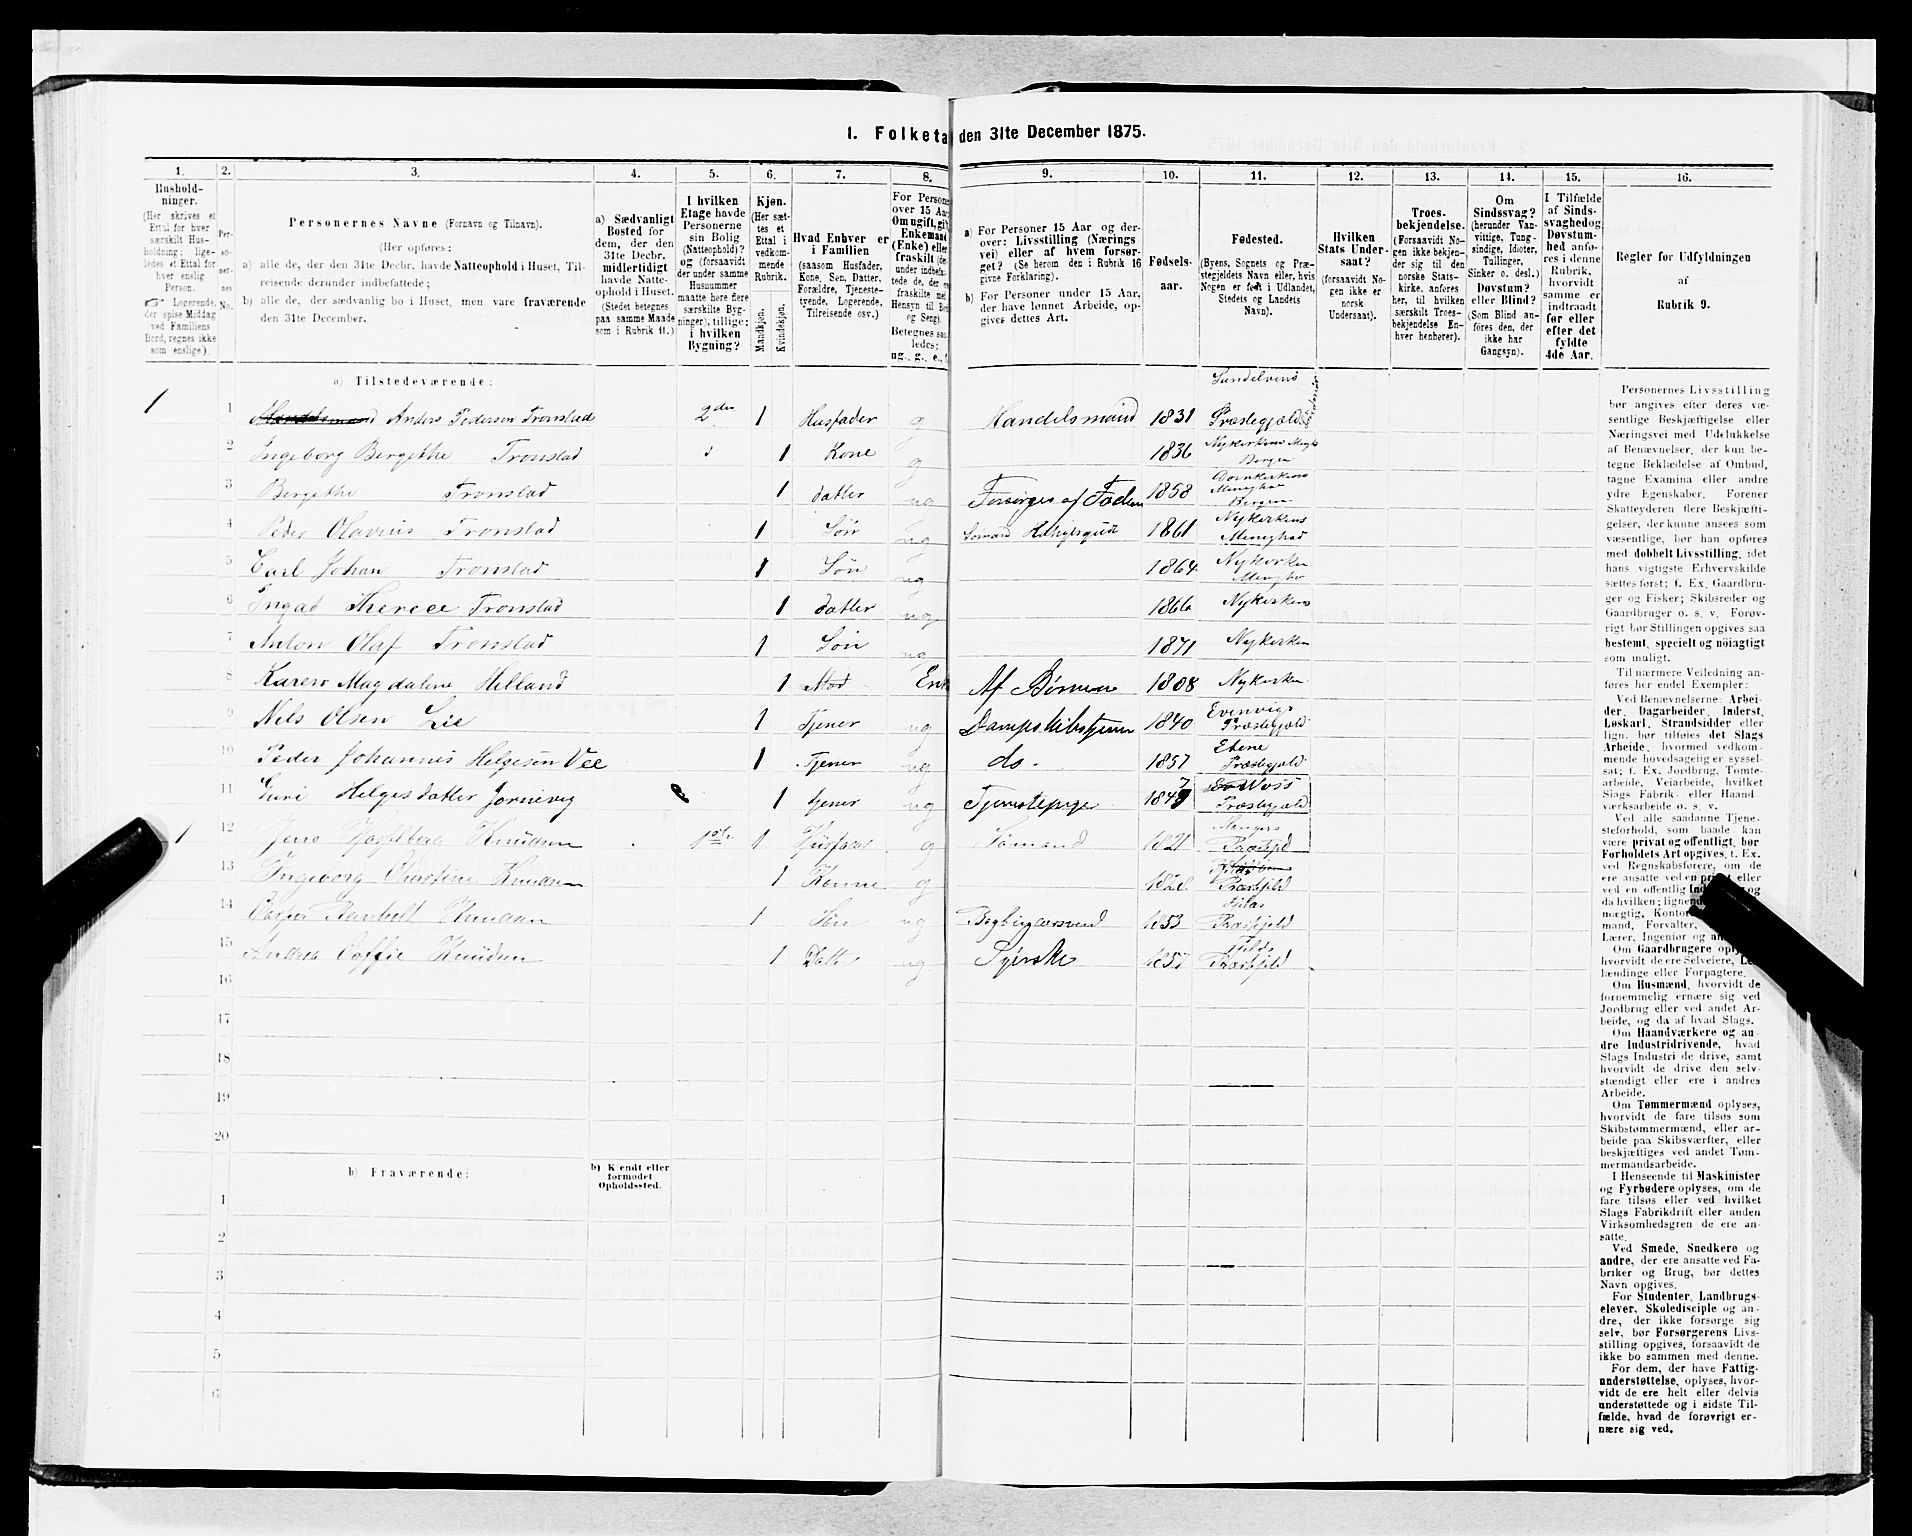 1. Folketa den 31te December 1875.
1. Husholdninger. (Her skrives et Ettal for hver særskilt Husholdning; ligeledes et Ettal for hver enslig Person. ☞ Logerende, der spise Middag ved Familiens Bord, regnes ikke som enslige).
2. Personernes No.
3. Personernes Navne (Fornavn og Tilnavn).
(Her opføres:
a) alle de, der den 31te Decbr. havde Natteophold i Huset, Tilreisende derunder indbefattede;
b) alle de, der sædvanlig bo i Huset, men vare fraværende den 31te December.
4. a) Sædvanligt Bosted for dem, der den 31te Decbr. midlertidigt havde Natteophold i Huset. (Stedet betegnes paa samme Maade som i Rubrik 11.)
5. I hvilken Etage havde Personerne sin Bolig (Natteophold)? og (forsaavidt der under samme Husnummer maatte høre flere særskilte Bygninger), tillige: i hvilken Bygning?
6. Kjøn. (Her sættes et Ettal i vedkommende Rubrik. Mandkjøn. Kvindekjøn.
7. Hvad Enhver er i Familien (saasom Husfader, Kone, Søn, Datter, Forældre, Tjenestetyende, Logerende, Tilreisende osv.)
8. For Persone over 15 Aa Om ugift, gi Enkemand (Enke) elle fraskilt
Betegnes saa ledes: ug., g., e.,
9. a) For Personer 15 Aar og derover: Livsstilling (Næringsvei) eller af hvem forsørget? (Se herom den i Rubrik 16 givne Forklaring).
b) For Personer under 15 Aar, der have lønnet Arbeide, opgives dettes Art.
10. Fødsels-aar.
11. Fødested. (Byens, Sognets og Præstegjeldets Navn eller, hvis Nogen er født i Udlandet, Stedets og Landets Navn).
12. Hvilken Stats Undersaat? (forsaavidt Nogen ikke er norsk Undersaat).
13. Troesbekjendelse. (Forsaavidt Nogen ikke bekjender sig til den norske Statskirke, anføres her, til hvilken særskilt Troesbekjendelse Enhver henhører).
14. Om Sindssvag? (herunder Vanvittige, Tungsindige, Idioter, Tullinger, Sinker o. desl.) Døvstum? eller Blind? (Som Blind anføres den, der ikke har Gangsyn).
15. I Tilfælde af Sindssvaghed og Døvstumhed anføres i denne Rubrik, hvorvidt samme er indtraadt før eller efter det fyldte 4de Aar.
16. Regler for Udfyldningen af Rubrik 9.
a) Tilstedeværende:
1 1 Handelsmand Anders Pedersen Tronstad 2den 1 Husfader g Handelsmand 1831 Præstegjæld
2 Ingeborg Bergethe Tronstad 1 Kone g 1836 Nykerkens Bergen
3 Bergethe Tronstad 1 datter ug Forsørges af Faderen 1858 Domkerkens Menighed Bergen
4 Peder Olavius Tronstad 1 Søn ug 1861 Nykerkens Menighed
5 Carl Johan Tronstad 1 Søn ug 1864 Nykerken
6 Therece Tronstad 1 datter ug 1866 Nykerkens
7 Anton Olaf Tronstad 1 Søn ug 1871 Nykerken
8 Karen Magdalene Helland 1 Mod Enk Af Børnene 1808 Nykerken
9 Nils Olsen Lie 1 Tjener ug Dampskibstjener 1840 Evenvigs Præstegjæld
10 Peder Johannes Helgesen Vee 1 Tjener ug do. 1857 Etene Præstegjæld
11 Guri Helgesdatter Jornevig 1 tjener ug Tjenestepige 1847 Woss Præstegjæld
1 12 Jens Knudsen 1ste 1 Husfader g Sømand 1821 Præstjeld
13 Ingeborg Christine Knudsen 1 Konne g Præstjeld
14 Casper Knudsen 1 Søn ug 1853 Præstjeld
15 Andrea Knudsen 1 Datter ug Syerske 1857 Præstjeld
16
17
18
19
20
b) Fraværende:
b) Kjendt eller formodet Opholdssted.
1
2
3
4
5
6
Personernes Livsstilling
bør angives efter deres væ-
sentlige Beskjæftigelse eller
Næringsvei med Udelukkelse
af Benævnelser, der kun be-
tegne Beklædelse af Ombud,
tagne Examina eller andre
ydre Egenskaber. Forener
Skatteyderen flere Beskjæfti-
gelser, der kunne ansees som
væsentlige, bør han opføres
med dobbelt Livsstilling, idet
hans vigtigste Erhvervskilde
sættes først; f. Ex. Gaardbru-
ger og Fisker; Skibsreder og
Gaardbruger o. s. v. Forøv-
rigt bør Stillingen opgives saa
bestemt, specielt og nøiagtigt
som muligt.
Til nærmere Veiledning an-
føres her endel Exempler:
Ved Benævnelserne: Arbei-
der, Dagarbeider, Inderst,
Løskarl, Strandsidder eller
lign. bør tilføies det Slags
Arbeide, hvormed vedkom-
mende hovedsagelig er syssel-
sat; f. Ex. Jordbrug, Tomte-
arbeide, Veiarbeide, hvilket
Slags Fabrik- eller Haand
værksarbeide o. s. v.
Ved alle saadanne Tjene-
steforhold, som baade kan
være privat og offentligt, bør
Forholdets Art opgives, t. Ex.
ved Regnskabsførere, om de
ere ansatte ved en privat eller
ved en offentlig Ind og
da hvilken; lignend
mægtig, Kontor
mand, Forvalter,
Lærer, Ingeniør og an
Om Gaardbrugere oply
hvorvidt de ere Selveiere, Le
lændinge eller Forpagtere.
Om Husmænd, hvorvidt de
fornemmelig ernære sig ved
Jordbrug eller ved andet Ar-
beide, og da af hvad Slags.
Om Haandværkere og an
dre Industridrivende, hvad
Slags Industri de drive, samt
hvorvidt de drive den selv-
stændigt eller ere i andres
Arbeide.
Om Tømmermænd oplyses,
hvorvidt de fare tilsøs som
Skibstømmermænd, eller ar-
beide paa Skibsværfter, eller
beskjæftiges ved andet Tøm-
mermandsarbeide.
I Henseende til Maskinister
og Fyrbødere oplyses, om de
fare tilsøs eller ved hvilket
Slags Fabrikdrift eller anden
Virksomhedsgren de ere an-
satte.
Ved Smede, Snedkere og
andre, der ere ansatte ved Fa-
briker og Brug, bør dettes
Navn opgives.
For Studenter, Landbrugs-
elever, Skoledisciple og an-
dre, der ikke forsørge sig
selv, bør Forsørgerens Livs-
stilling opgives, forsaavidt de
ikke bo sammen med denne.
For dem, der have Fattig-
understøttelse, oplyses, hvor-
vidt de ere helt eller delvis
understøttede og i sidste Til-
fælde, hvad de forøvrigt er-
nære sig ved.